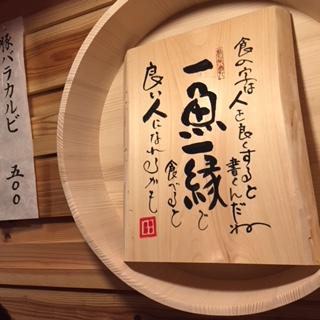 食の字は人を良くすると
書くんだね
一魚一縁で
食べると
良い人になれるかも
豚バラカルビ
五〇〇